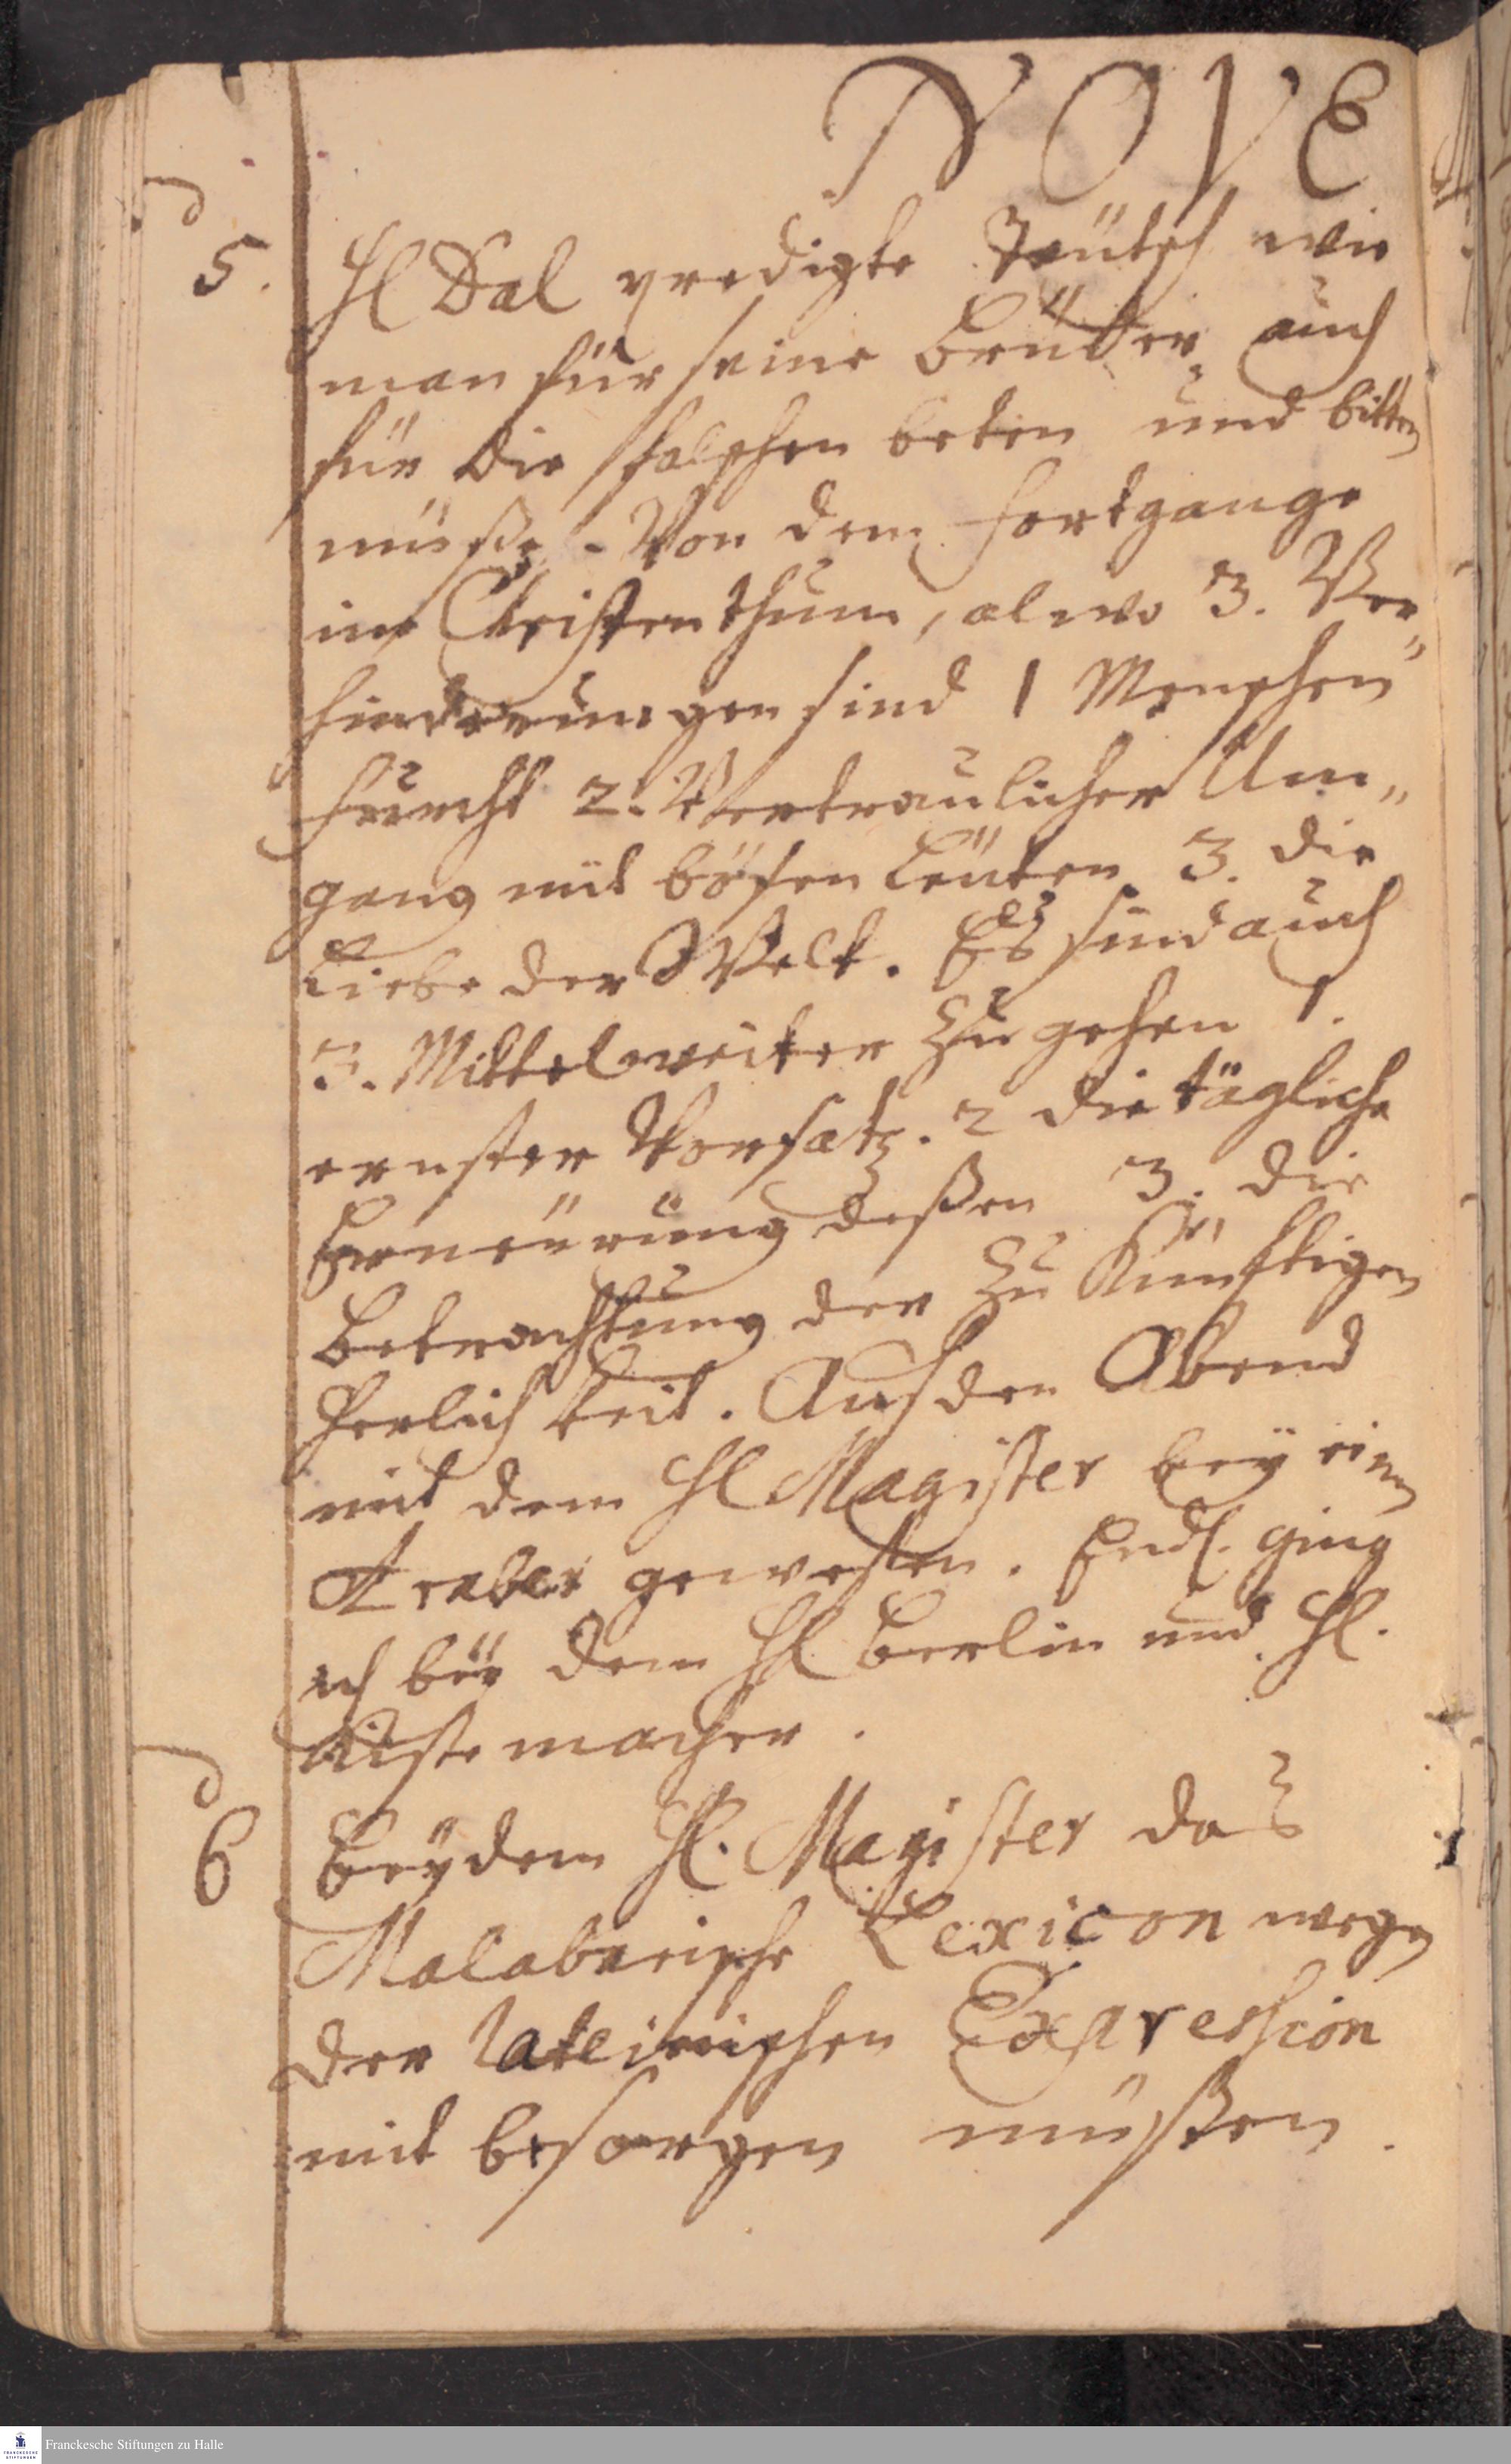 NOVE
5. Hl Dal predigte Teütsch wie
man für seine Brüder auch
für die falschen beten und bitten
müße. Von dem Fortgange
im Christenthum, alwo 3. Ver„
hinderungen sind 1 Menschen
furcht 2. Vertraulicher Um„
gang mit bösen Leüten 3. die
Liebe der Welt. Es sind auch
3. Mittel weiter zu gehen 1.
ernster Vorsatz. 2 die tägliche
Erneürung deßen 3. die
Betrachtung der zu Künftigen
Herlichkeit. Auf den Abend
mit dem Hl Magister bey einen
Araber gewesten. Endl. ging
ich bey dem Hl Berlin und Hl.
Kistemacher.
6 Bey dem Hl. Magister das
Malabarische Lexicon wegen
der lateinischen Expression
mit besorgen müßen.
Franckesche Stiftungen zu Halle